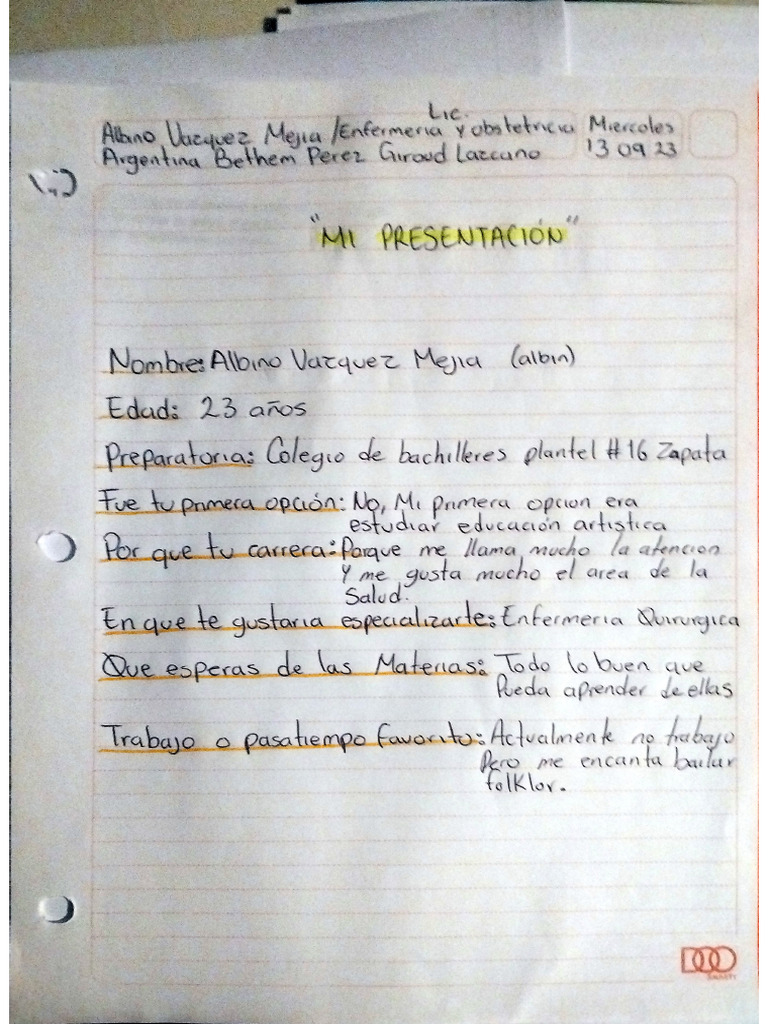 Lic.
Albino Vazquez Mejia /Enfermeria y obstetricia Miercoles
Argentina Bethem Perez Giroud Lazcano 13 09 23
"MI PRESENTACIÓN"
Nombre: Albino Vazquez Mejia (albin)
Edad: 23 años
Preparatoria: Colegio de bachilleres plantel #16 Zapata
Fue tu primera opción: No, Mi primera opcion era
estudiar educación artistica
Por que tu carrera: Porque me llama mucho la atencion
Y me gusta mucho el area de la
Salud.
En que te gustaria especializarte: Enfermeria Quirurgica
Que esperas de las Materias: Todo lo buen que
Pueda aprender de ellas
Trabajo o pasatiempo favorito: Actualmente no trabajo
Pero me encanta bailar
folklor.